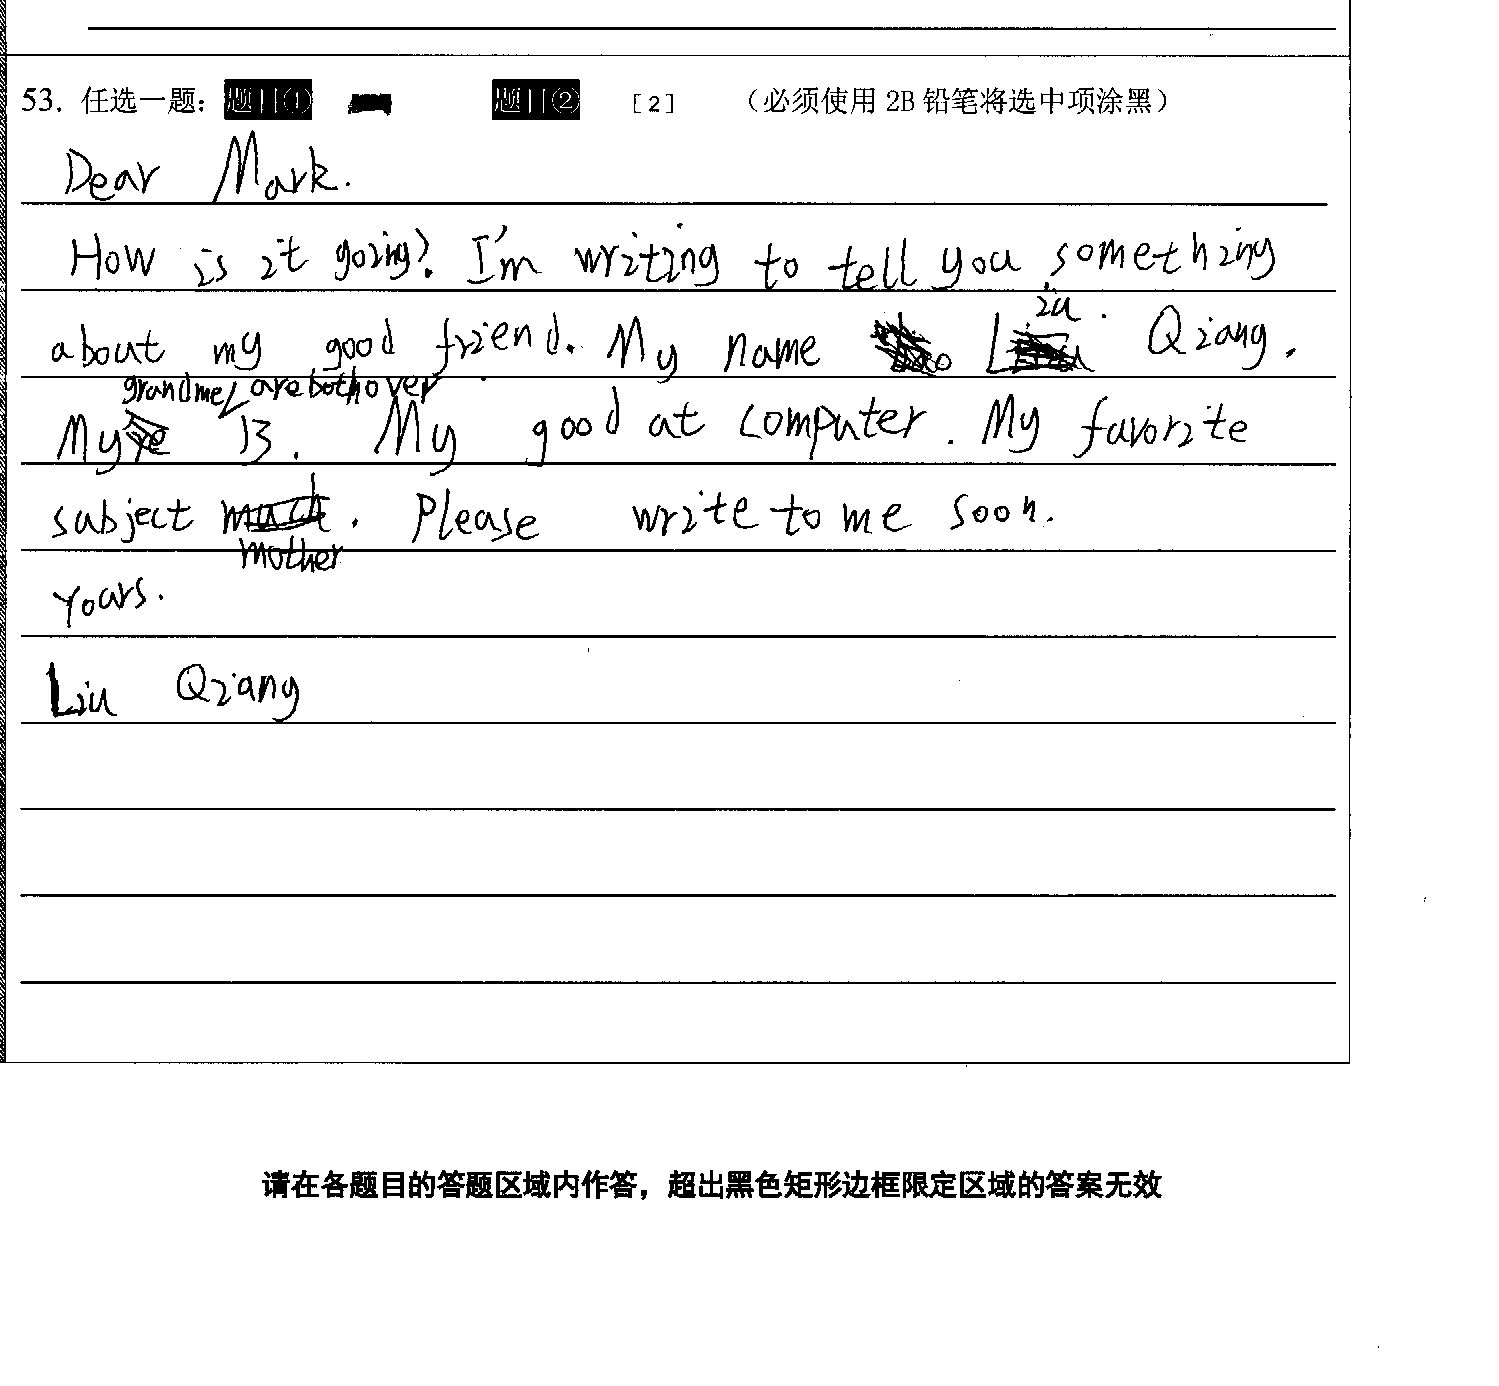 53. 任选一题： 题目① 题目② [2] （必须使用 2B 铅笔将选中项涂黑）
Dear Mark.
How is it going? I'm writing to tell you something
about my good friend. My name Liu. Qiang.
My grandme are both over 13. My good at computer. My favorite
subject mother. Please write to me soon.
Yours.
Liu Qiang
请在各题目的答题区域内作答，超出黑色矩形边框限定区域的答案无效